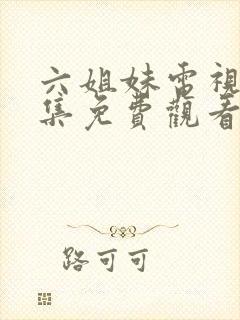 六姐妹電視
集免費觀看
路可可